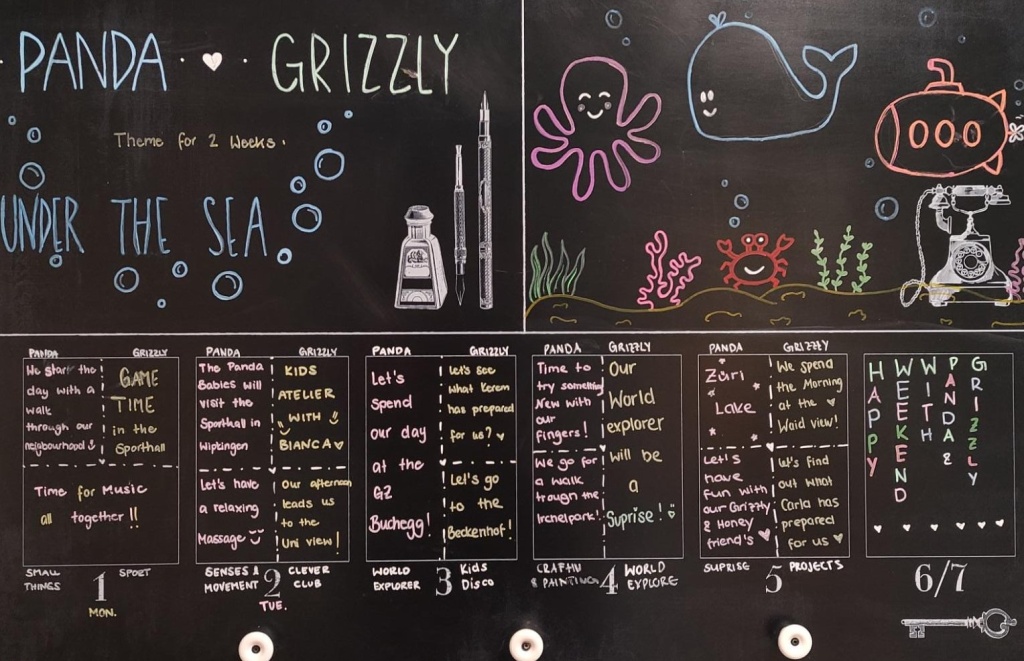 PANDA · ♥ · GRIZZLY
Theme for 2 Weeks.
UNDER THE SEA
PANDA GRIZZLY
We start the
day with a
walk
through our
neigbourhood
GAME
TIME
in the
Sporthall
Time for Music
all together !!
SMALL
THINGS
SPORT
1
MON.
PANDA GRIZZLY
The Panda
Babies will
visit the
Sporthall in
Wipkingen
KIDS
ATELIER
WITH
BIANCA ♥
Let's have
a relaxing
Massage
Our afternoon
leads us
to the
Uni view!
SENSES &
MOVEMENT
CLEVER
CLUB
2
TUE.
PANDA GRIZZLY
Let's
spend
our day
at the
GZ
Buchegg!
let's see
what Kerem
has prepared
for us? ♥
Let's go
to the
Beckenhof!
WORLD
EXPLORER
Kids
Disco
3
PANDA GRIZZLY
Time to
try something
New with
our
fingers!
We go for
a walk
trough the
Irchelpark!
Our
World
explorer
will be
a
Suprise!
& PAINTING
WORLD
EXPLORE
4
PANDA GRIZZLY
Züri
Lake
We spend
the Morning
at the ♥
Waid view!
Let's
have
fun with
our Grizzly
& Honey
friend's ♥
let's find
out what
Carla has
prepared
for us ♥
SUPRISE
PROJECTS
5
HAPPY
WEEKEND
WITH
PANDA &
GRIZZLY
6/7